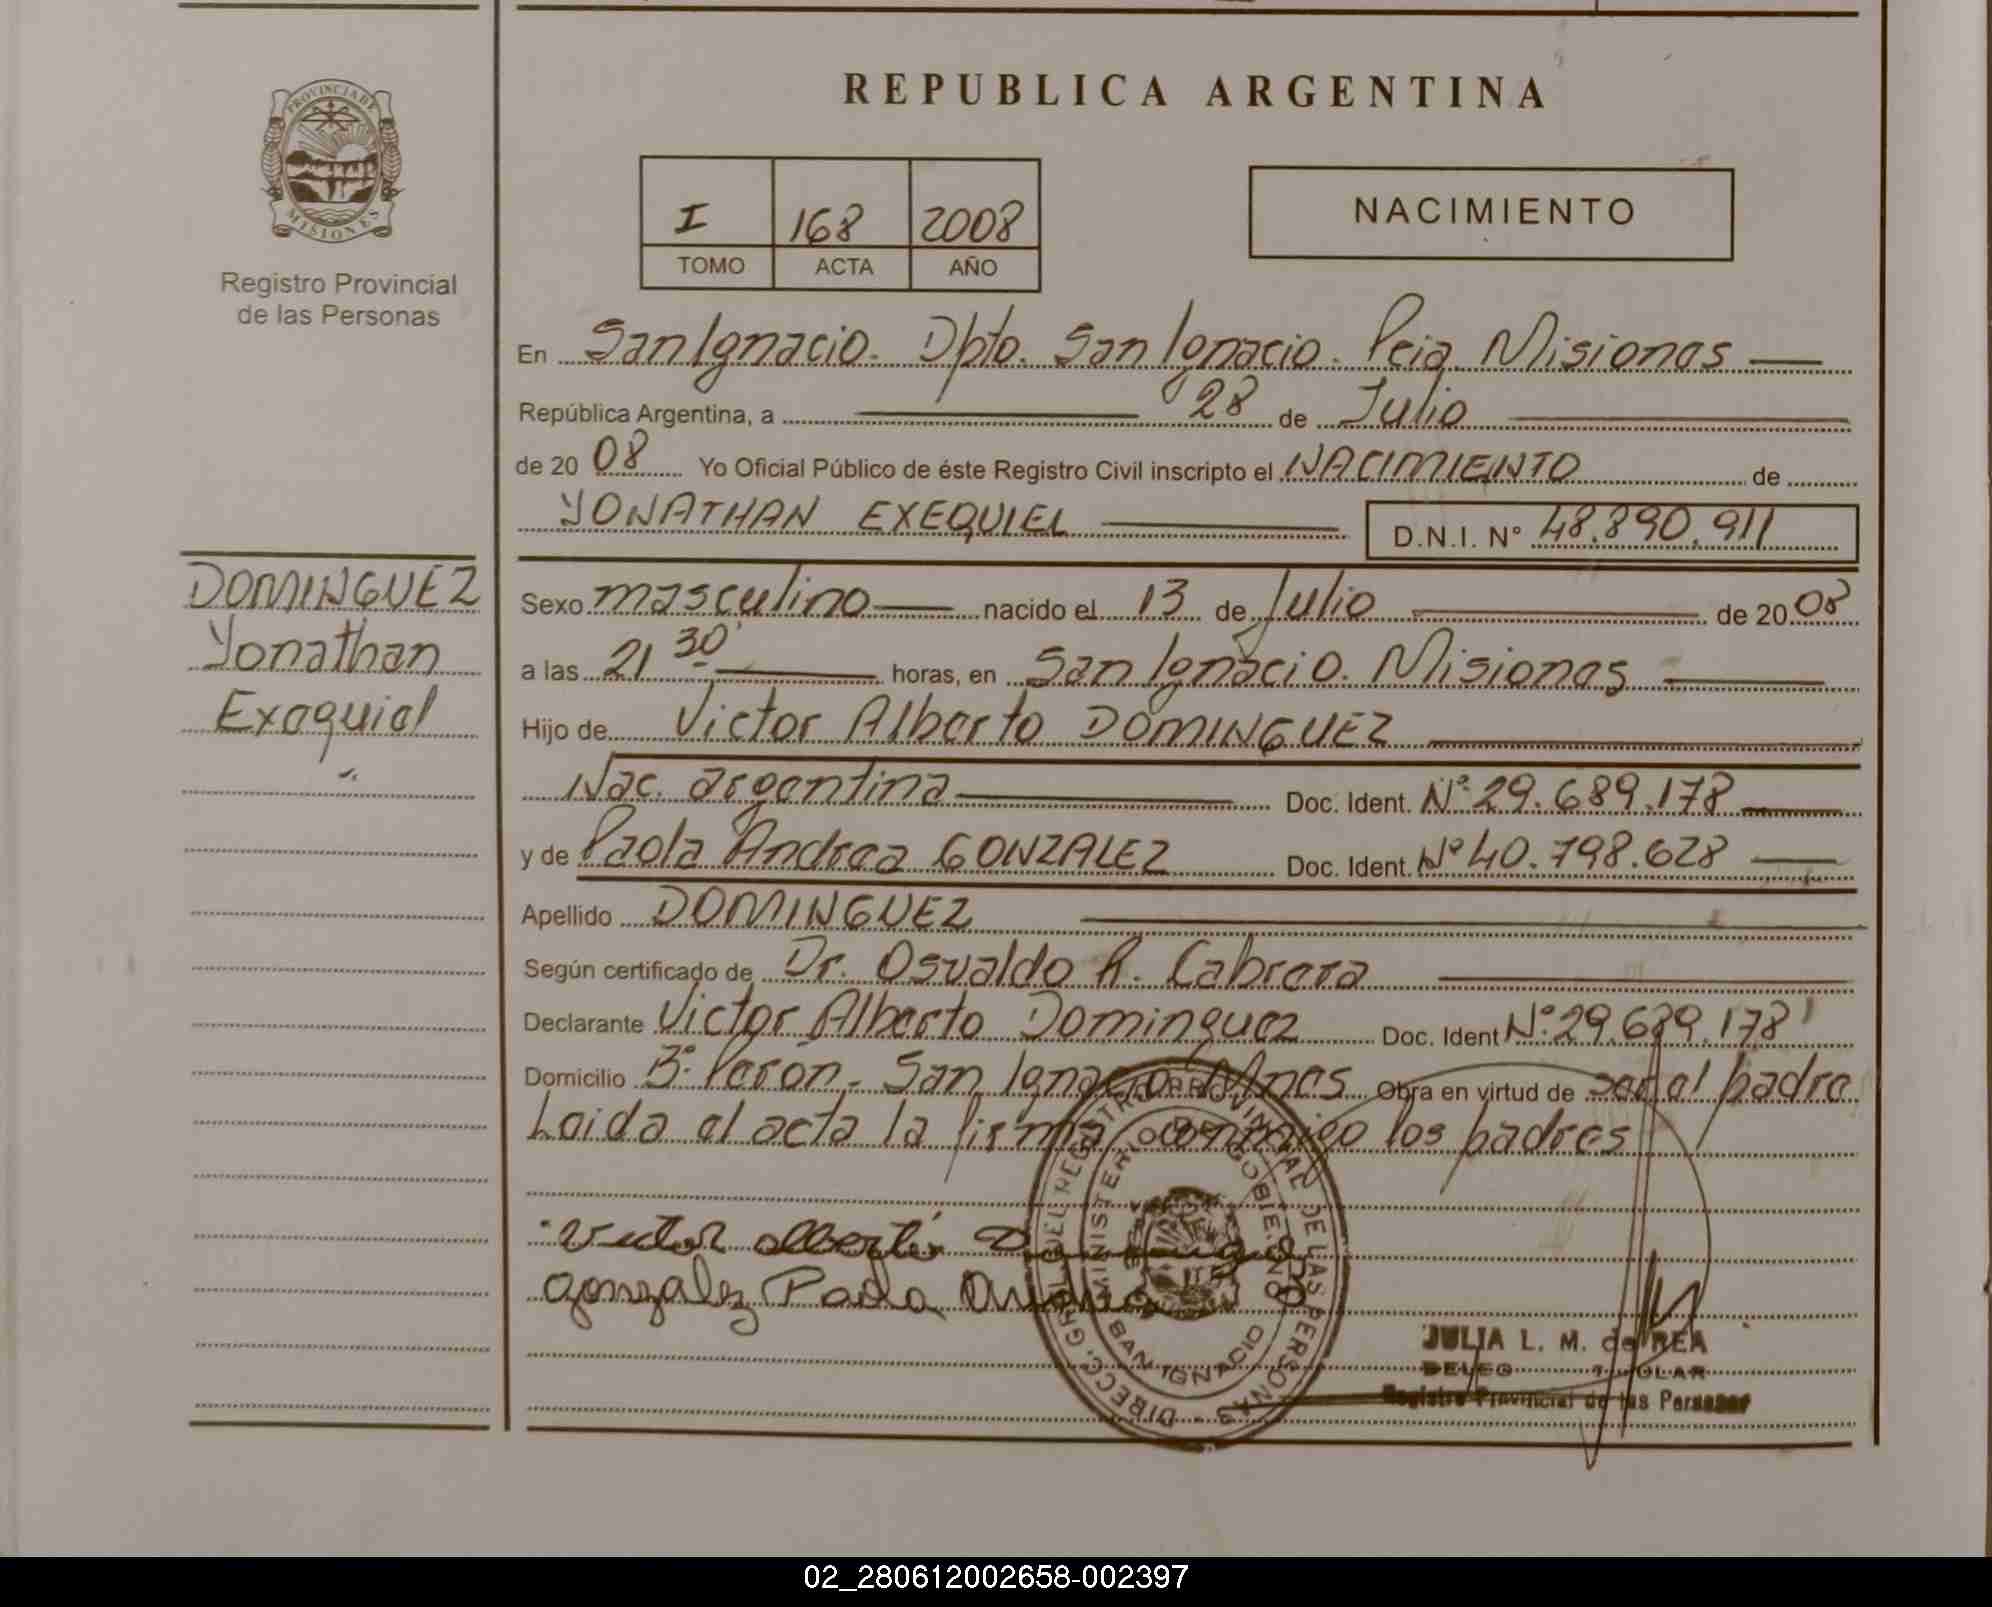 REPUBLICA ARGENTINA
PROVINCIA DE
MISIONES
Registro Provincial
de las Personas
I 168 2008
TOMO ACTA AÑO
NACIMIENTO
En San Ignacio. Dpto. San Ignacio. Pcia. Misiones
República Argentina, a 28 de Julio
de 20 08 Yo Oficial Público de éste Registro Civil inscripto el NACIMIENTO de
YONATHAN EXEQUIEL D.N.I. N° 48.890.911
DOMINGUEZ
Yonathan
Exequiel
Sexo masculino nacido el 13 de Julio de 20 08
a las 21 30' horas, en San Ignacio. Misiones
Hijo de Victor Alberto DOMINGUEZ
Nac. argentina Doc. Ident. N° 29.689.178
y de Paola Andrea GONZALEZ Doc. Ident. N° 40.798.628
Apellido DOMINGUEZ
Según certificado de Dr. Osvaldo R. Cabrera
Declarante Victor Alberto Dominguez Doc. Ident N° 29.689.178
Domicilio B° Perón - San Ignacio Mnes Obra en virtud de ser el padre
Leida el acta la firman conmigo los padres
Victor Alberto
Gonzalez Paola Andrea
DIRECC. GRAL. DEL REGISTRO PROVINCIAL DE LAS PERSONAS
MINISTERIO DE GOBIERNO
SAN IGNACIO
JULIA L. M. de REA
DELEG TITULAR
Registro Provincial de las Personas
02_280612002658-002397